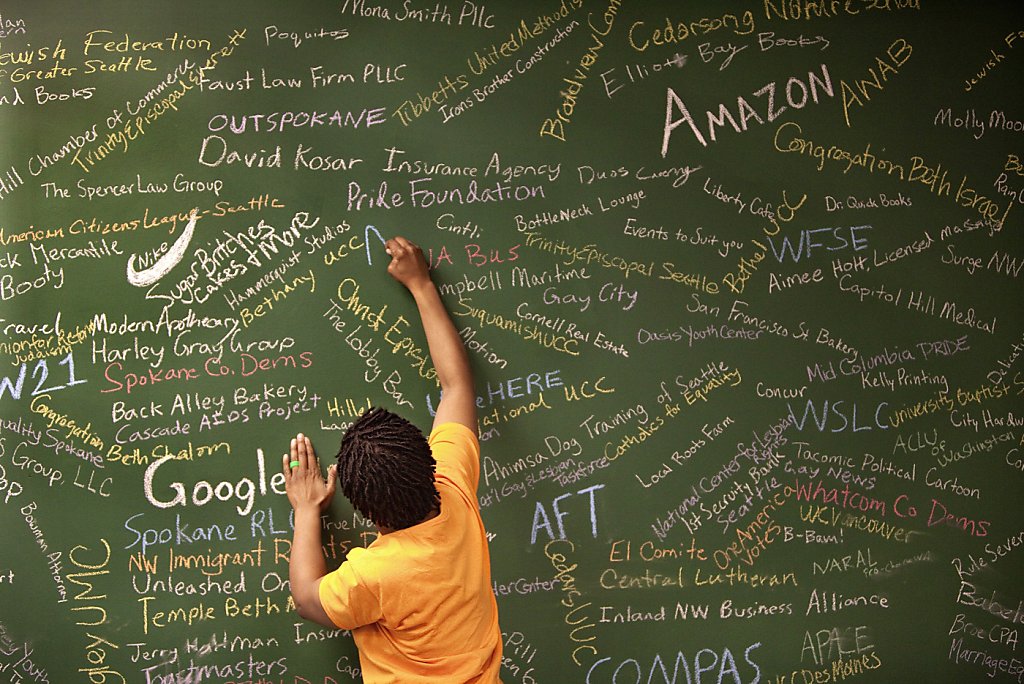 Mona Smith Pllc
Nature School
Poquitos
Tibbetts United Methodist
Irons Brother Construction
Broadview
Cedarsong
Elliott Bay Books
ewish Federation
f Greater Seattle
nd Books
Faust Law Firm PLLC
AMAZON
ANAB
Jewish
Molly Moo
Hill Chamber of Commerce
Trinity Episcopal
OUTSPOKANE
David Kosar Insurance Agency
Congregation Beth Israel
The Spencer Law Group
Pride Foundation
Duos Catering
Liberty Cafe
Dr. Quick Books
merican Citizens League - Seattle
ck Mercantile
Booty
Nike
Sugar Britches
Cakes & More
Hammerquist Studios
Bethany UCC
Cintli
BottleNeck Lounge
Events to Suit you
Bothell UCC
WFSE
Aimee Holt, Licensed massage
Surge NW
A Bus
Trinity Episcopal Seattle
mpbell Maritime
Gay City
San Francisco St. Bakery
Capitol Hill Medical
Travel
Judaism
Modern Apothecary
Harley Gray Group
Spokane Co. Dems
Christ Episcopal
The Lobby Bar
Suquamish UCC
Cornell Real Estate
Motion
Oasis Youth Center
Mid Columbia PRIDE
Kelly Printing
W21
Congregation
Beth Shalom
quality Spokane
Group, LLC
Back Alley Bakery
Cascade AIDS Project
HERE
ational UCC
Animsa Dog Training of Seattle
Catholics for Equality
Concur
WSLC
University Baptist
City Hardw
ACLU of Washington
Google
Local Roots Farm
Nat'l Gay & Lesbian Taskforce
National Center for Lesbian
1st Security Bank
Seattle Gay News
Tacomic Political Cartoon
Whatcom Co Dems
UCC Vancouver
B-Bam!
One America Votes
AFT
Bowman Attorney
Spokane RL
True No
NW Immigrant R
Unleashed On
Temple Beth
UMC
Cedars UCC
El Comite
Central Lutheran
NARAL
Pro-choice
Rule Seven
Inland NW Business Alliance
Broe CPA
Marriage
APACE
UCC Des Moines
Jerry Hallman Insu
Toastmasters
COMPAS